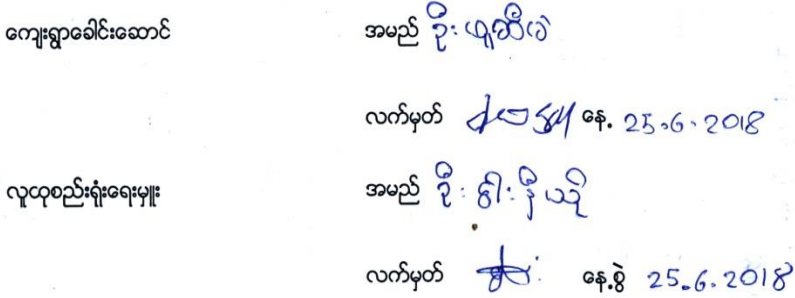 ကျေးရွာခေါင်းဆောင် အမည် ဦး
လက်မှတ် နေ့. 25.6.2018
လူထုစည်းရုံးရေးမှူး အမည် ဦး ငါး နီ ယို
လက်မှတ် နေ့.စွဲ 25.6.2018